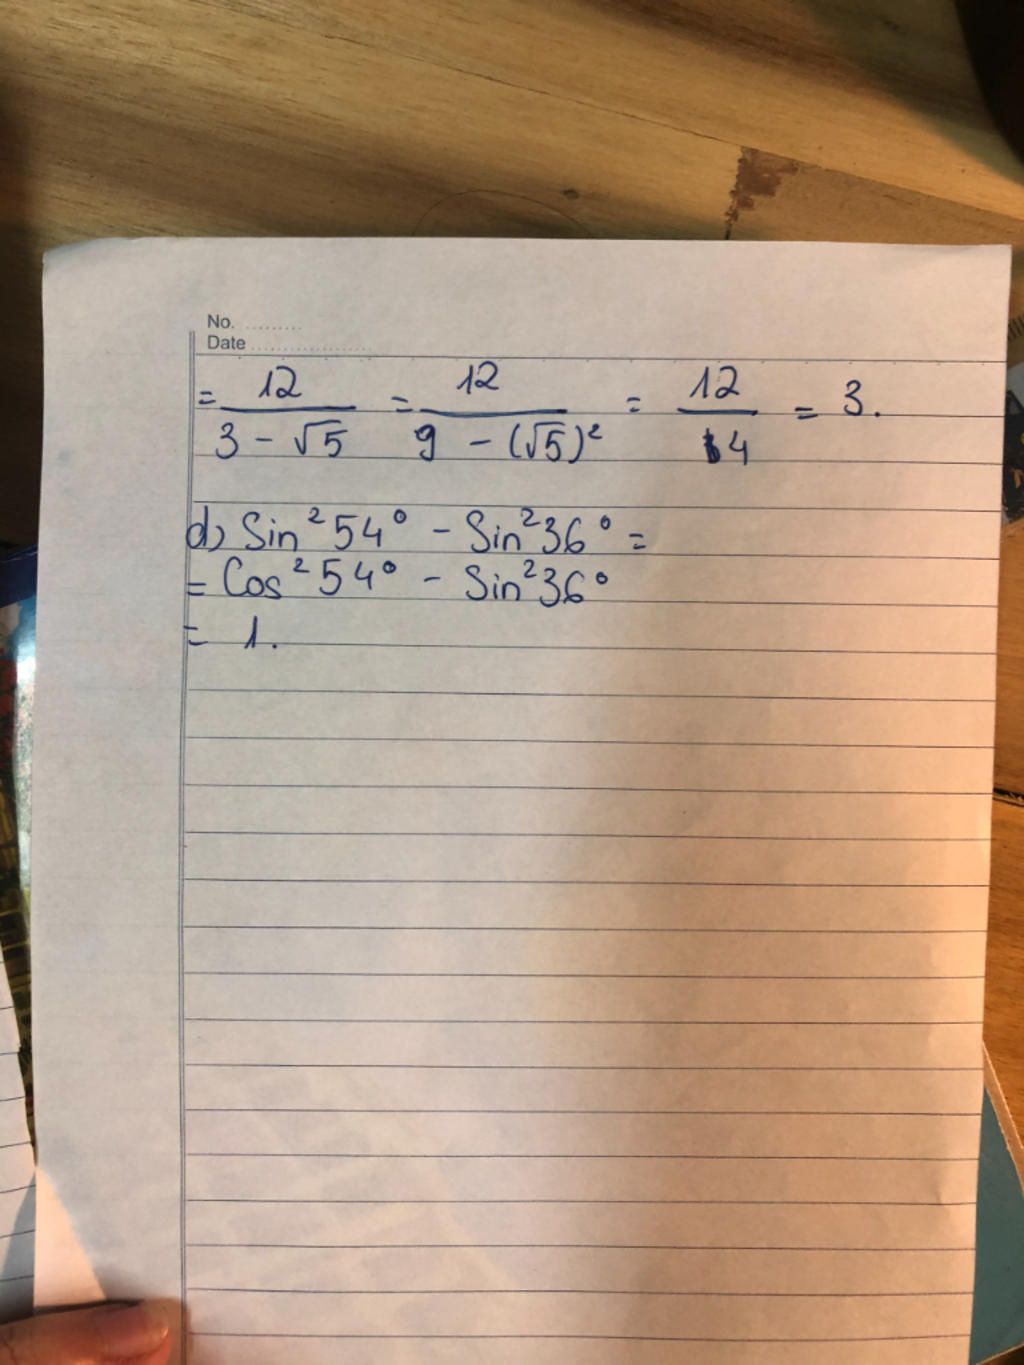 No. .........
Date ..................
= 12/(3 - √5) = 12/(9 - (√5)²) = 12/4 = 3.
d) Sin² 54° - Sin² 36° =
= Cos² 54° - Sin² 36°
= 1.